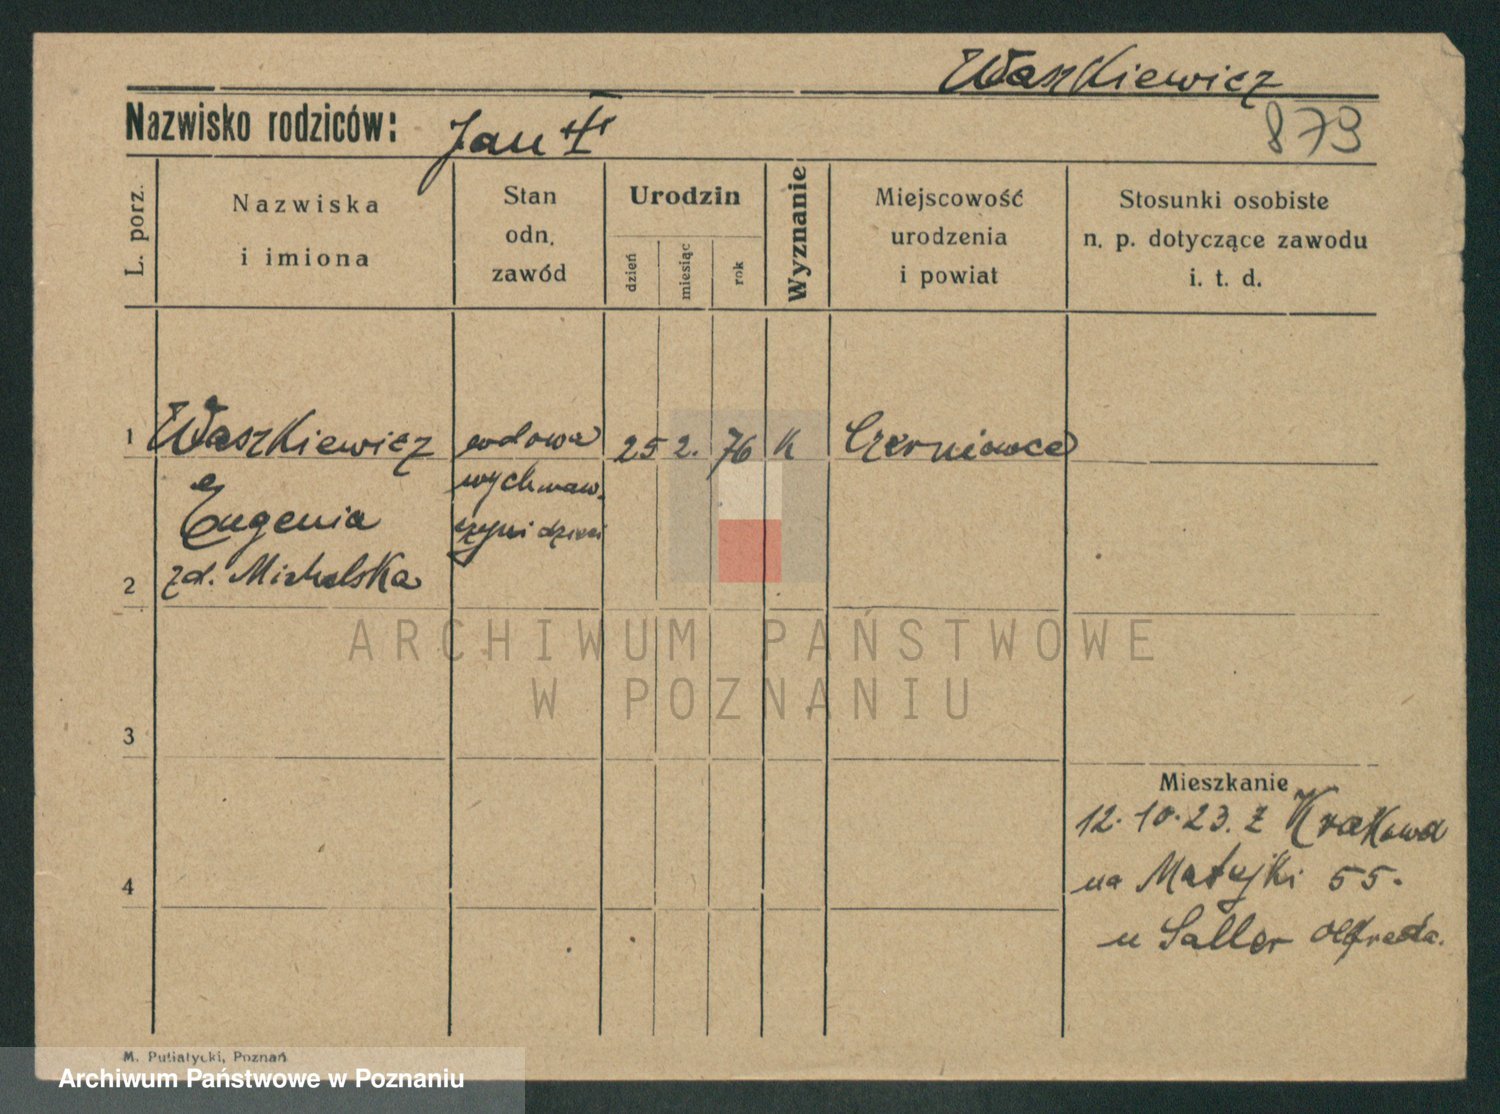 Waszkiewicz
Nazwisko rodziców: Jan
873
L. porz.
Nazwiska
i imiona
Stan
odn.
zawód
Urodzin
dzień
miesiąc
rok
Wyznanie
Miejscowość
urodzenia
i powiat
Stosunki osobiste
n. p. dotyczące zawodu
i. t. d.
1 Waszkiewicz wdowa 25 2. 76 K Czerniowce
Eugenia
wychowaw.
czyni dzieci
2 zd. Michalska
ARCHIWUM PAŃSTWOWE
W POZNANIU
3
Mieszkanie
12.10.23. z Krakowa
4
na Matejki 55.
u Saller Alfreda.
M. Putiatycki, Poznań
Archiwum Państwowe w Poznaniu